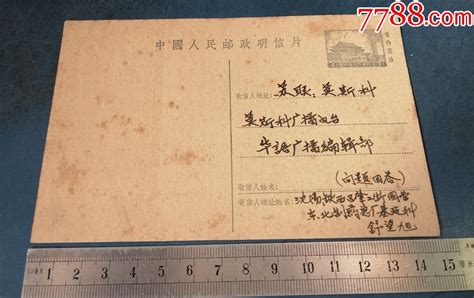 7788.com
中國人民邮政明信片
收信人地址：苏联：莫斯科
莫斯科广播电台
华语广播编辑部
(问题回答)
收信人姓名：
寄信人地址：沈阳铁西区
东北制药总厂基建科
舒望旭
0 1 2 3 4 5 6 7 8 9 10 11 12 13 14 15